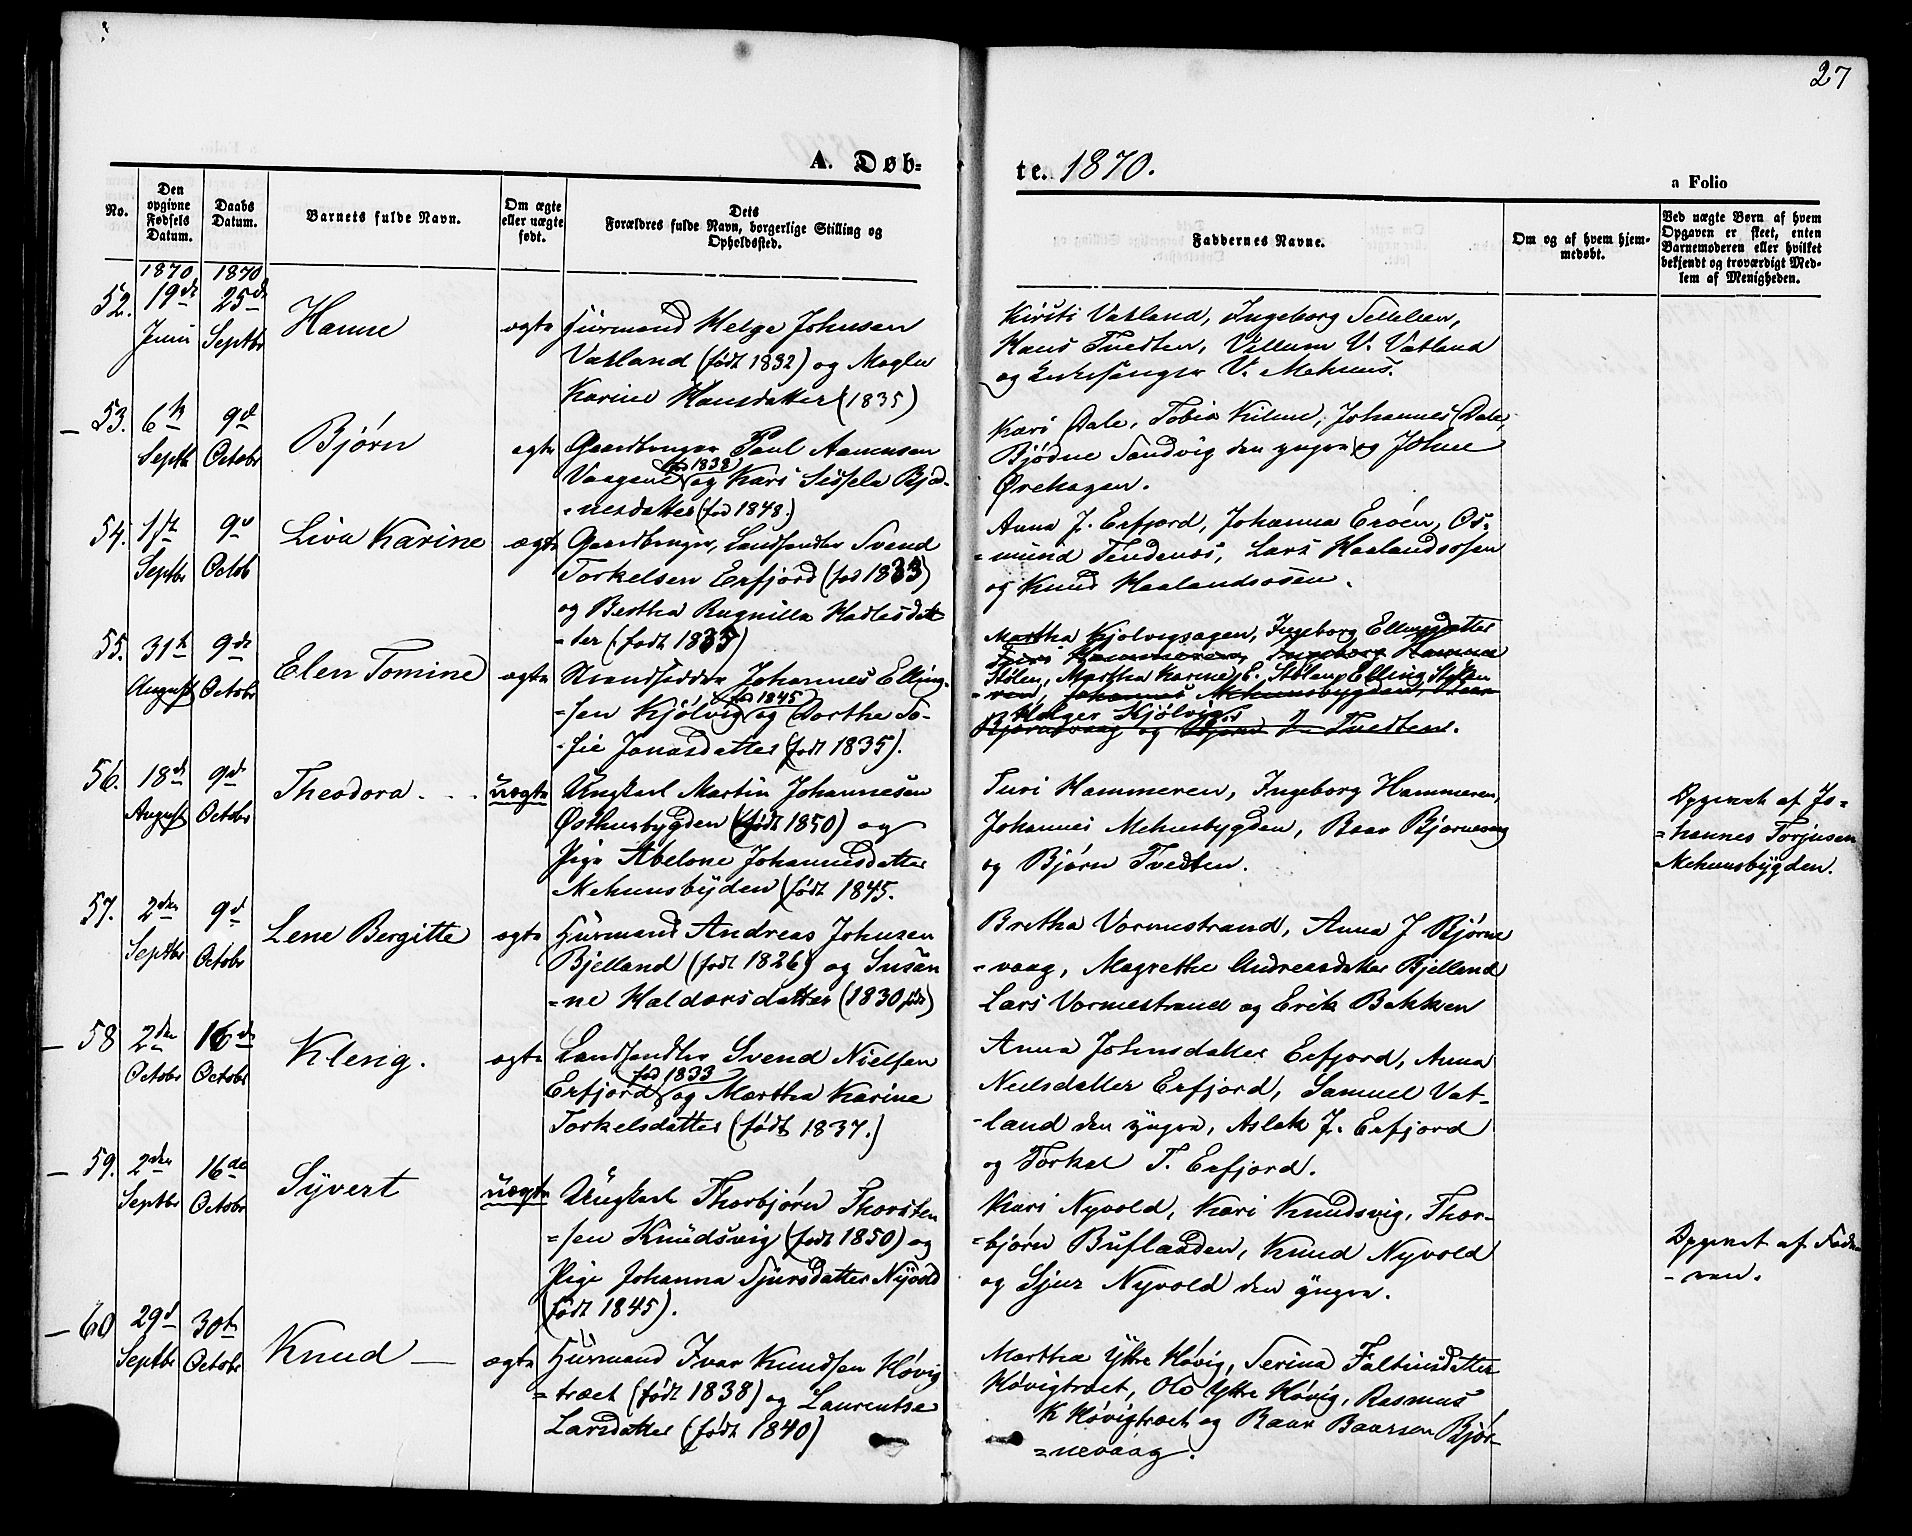 27
A. Døb-
te. 1870.
a Folio
No.
Den opgivne Fødsels Datum.
Daabs Datum.
Barnets fulde Navn.
Om ægte eller uægte født.
Dets Forældres fulde Navn, borgerlige Stilling og Opholdssted.
Faddernes Navne.
Om og af hvem hjemmedøbt.
Ved uægte Børn af hvem Opgaven er skeet, enten Barnemoderen eller hvilket bekjendt og troværdigt Medlem af Menigheden.
1870. 1870
52. 19de Juni 25de Septbr Hanne ægte Huusmand Helge Johnsen
Vatland (født 1832) og Magla
Karine Hansdatter (1835)
Kirsti Vatland, Ingeborg
Hans Tvedten, Villum V. Vatland
og Kirkesanger V. Mehuus.
53. 6te Septbr 9de Octobr Bjørn ægte Gaardbruger Paul Aamensen
Vaagene (fød 1838) og Kari Sissela Bjød-
-nesdatter (fød 1848.)
Kari Dale, Tobia Kilane, Johannes Dale,
Bjødne Sandvig den yngre og Johne
Ørehagen.
54. 1ste Septbr 9de Octob Liva Karine ægte Gaardbruger, Landhandler Svend
Torkelsen Erfjord (fød 1833)
og Bertha Ragnilla Hadlesdat
-ter (født 1835)
Anna J. Erfjord, Johanna Eroén, Os-
=mund Tendenæs, Lars Haalandsosen
og Knud Haalandsosen.
55. 31te August 9de Octobr Elen Tomine ægte Strandsidder Johannes Elling-
-sen Kjølvig (fød 1845) og Dorthe To-
-fie Jonasdatter (født 1835).
Martha Kjølvigsagen, Ingeborg Ellingsdatter
Turi Hammeren, Ingeborg Hamme
Stølen, Martha Karine E. Stølen, Elling Stølen
-ren, Johannes Mehuusbygden, Baar
Holger Kjølvig.
Bjørnevaag og Bjørn J. Tvedten.
56. 18de August 9de Octobr Theodora. uægte Ungkarl Martin Johannesen
Østhusbygden (født 1850) og
Pige Abelone Johannesdatter
Mehuusbyden (født 1845.
Turi Hammeren, Ingeborg Hammeren,
Johannes Mehusbygden, Baar Bjørnevaag
og Bjørn Tvedten.
Opgivet af Jo-
=hannes Torjusen
Mehuusbygden.
57. 2den Septbr 9de Octobr Lene Bergitte ægte Huusmand Andreas Johnsen
Bjelland (født 1826) og Susan
=ne Haldorsdatter (1830 født)
Bretha Vormestrand, Anna J Bjørne
-vaag, Magrethe Andreasdatter Bjelland
Lars Vormestrand og Erik Bakken
58 2den Octobr 16de Octobr Klerig. ægte Landhandler Svend Nielsen
Erfjord (fød 1833) og Martha Karine
Torkelsdatter (født 1837.)
Anna Johnsdatter Erfjord, Anna
Neilsdatter Erfjord, Samuel Vat-
-land den yngre, Aslak J. Erfjord
og Torkel T. Erfjord.
59. 2den Septbr 16de Octobr Syvert uægte Ungkarl Thorbjørn Thorsten
=sen Knudsvig (født 1850) og
Pige Johanna Sjursdatter Nyvold
(født 1845).
Kari Nyvold, Kari Knudsvig, Thor-
=bjørn Buflaadden, Knud Nyvold
og Sjur Nyvold den yngre.
Opgivet af Fade
-ren.
60 29de Septbr 30te Octobr Knud — ægte Huusmand Ivar Knudsen Høvig
=træet (født 1838) og Laurentse
Larsdatter (født 1840)
Martha Yttre Høvig, Serina Faltinsdatter
Høvigtræet, Ole Yttre Høvig, Rasmus
K Høvigtræet og Baar Baarsen Bjør-
=nevaag.